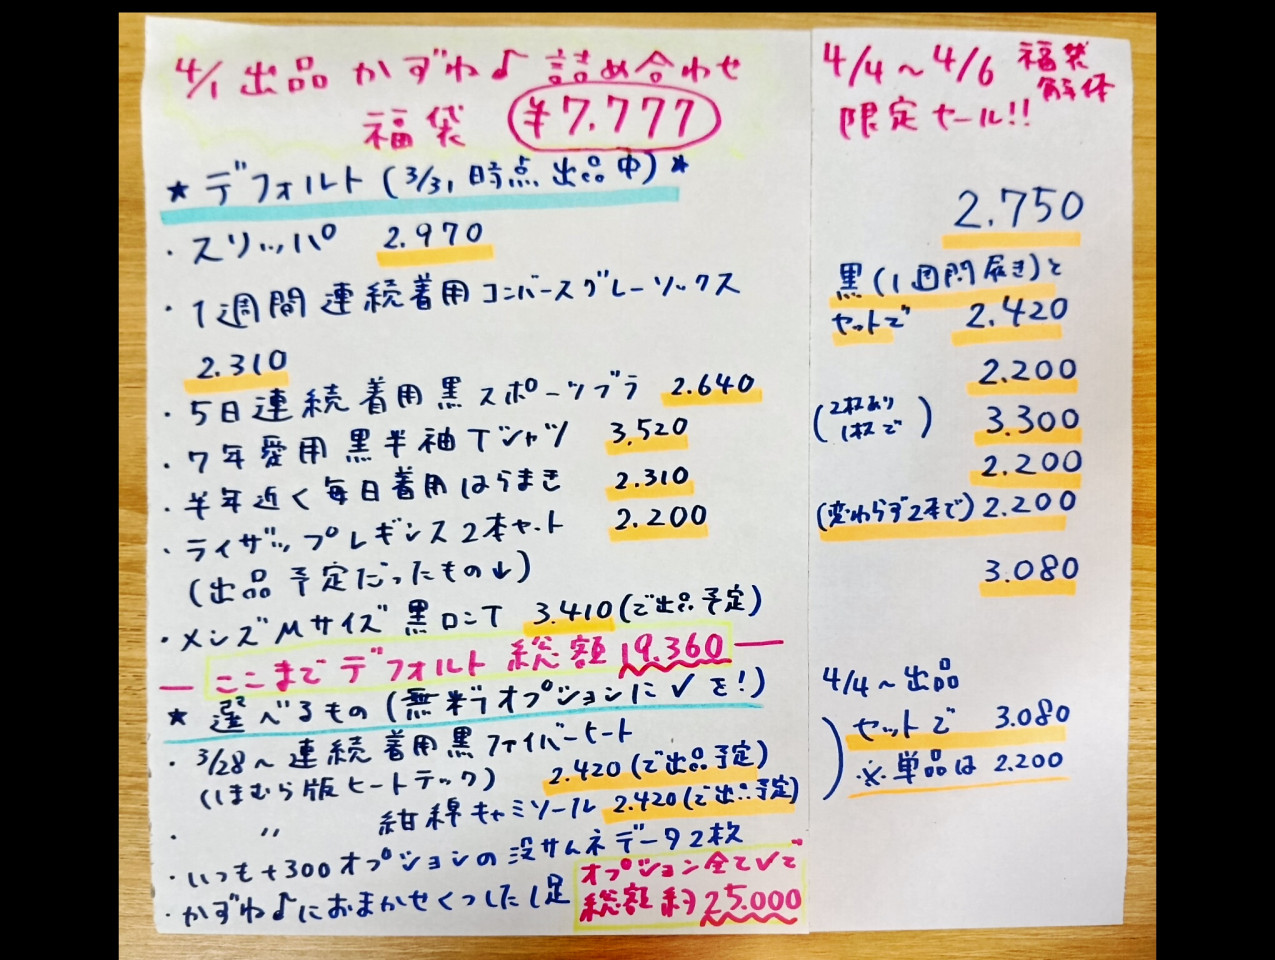 4/1 出品 かずね♪ 詰め合わせ
福袋 ¥7.777
★ デフォルト (3/31 時点 出品中) ★
・スリッパ 2.970
・1週間 連続着用 コンバースグレーソックス
2.310
・5日連続着用 黒 スポーツブラ 2.640
・7年愛用 黒半袖Tシャツ 3,520
・半年近く毎日着用はらまき 2.310
・ライザップレギンス2本セット 2.200
(出品予定だったもの↓)
・メンズMサイズ 黒ロンT 3.410 (で出品予定)
― ここまでデフォルト 総額 19.360 ―
★ 選べるもの (無料オプションに✓を!)
・3/28〜連続着用黒ファイバーヒート
(しまむら版ヒートテック) 2.420 (で出品予定)
・ 〃 紺綿キャミソール 2.420 (で出品予定)
・いつも+300オプションの没サムネデータ2枚
・かずね♪におまかせくつした1足
オプション全て✓で
総額 約25.000
4/4〜4/6 福袋
解体
限定セール!!
2.750
黒(1週間履き)と
セットで 2.420
2.200
(2枚あり
1枚で) 3.300
2.200
(変わらず2本で) 2.200
3.080
4/4〜出品
セットで 3.080
※単品は 2.200